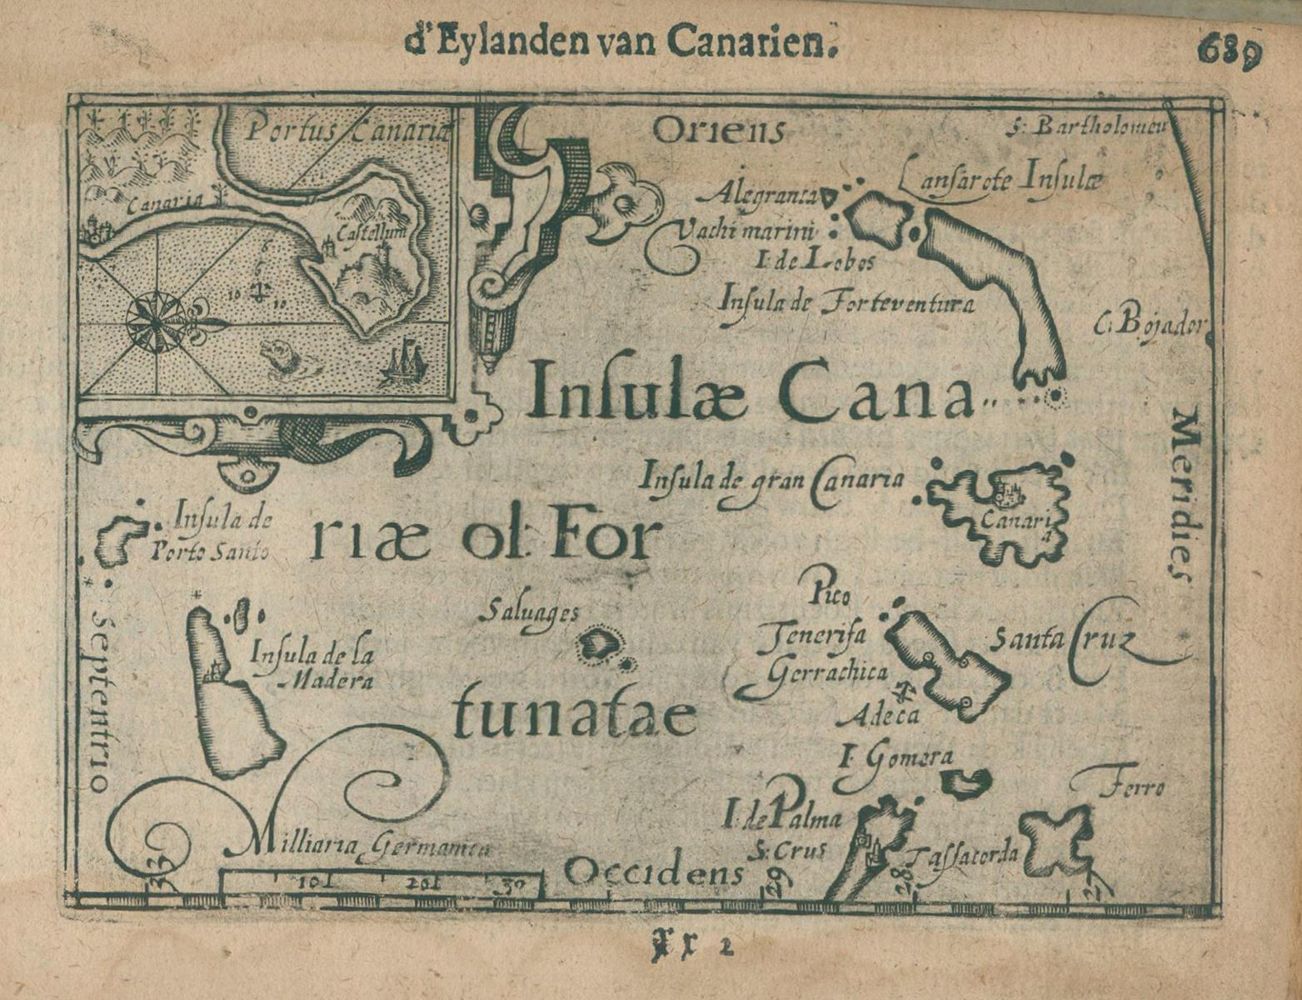 d'Eylanden van Canarien.
689
Portus Canariæ
Canaria
Castellum
8
10
10
Oriens
S: Bartholomeu
Lansarote Insulæ
Alegranca
Vachi marini
I. de Lobos
Insula de Forteventura
C. Bojador
Insulæ Cana
Meridies
Insula de gran Canaria
Canaria
Insula de
Porto Santo
riæ ol: For
Septentrio
Salvages
Insula de la
Madera
Pico
Tenerifa
Gerrachica
Santa Cruz
Adeca
tunatae
I. Gomera
Ferro
I. de Palma
S: Crus
Tassacorda
Milliaria Germanica
10
20
30
Occidens
33
29
28
27
Xx 2